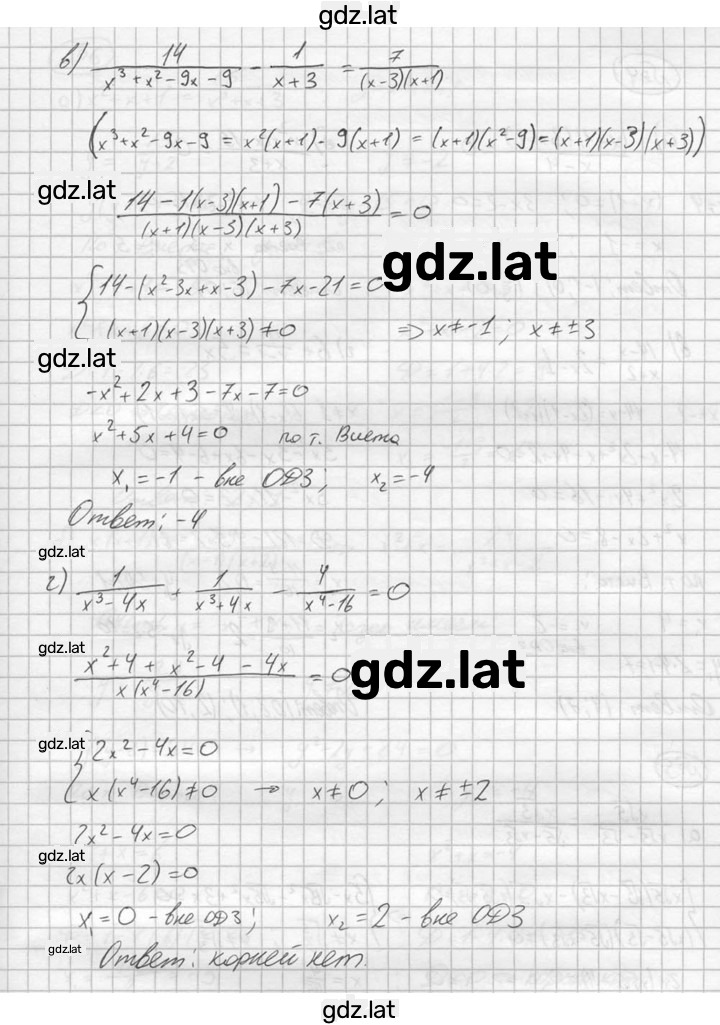 gdz.lat
в) 14/(x³+x²-9x-9) - 1/(x+3) = 7/((x-3)(x+1))
(x³+x²-9x-9 = x²(x+1)-9(x+1) = (x+1)(x²-9) = (x+1)(x-3)(x+3))
gdz.lat
(14-1(x-3)(x+1)-7(x+3))/((x+1)(x-3)(x+3)) = 0
gdz.lat
{14-(x²-3x+x-3)-7x-21=0
(x+1)(x-3)(x+3)≠0 => x≠-1; x≠±3
gdz.lat
-x²+2x+3-7x-7=0
x²+5x+4=0 по т. Виета
x₁=-1 - вне ОДЗ; x₂=-4
Ответ: -4
gdz.lat
г) 1/(x³-4x) + 1/(x³+4x) - 4/(x⁴-16) = 0
gdz.lat
(x²+4+x²-4-4x)/(x(x⁴-16)) = 0
gdz.lat
gdz.lat
{2x²-4x=0
x(x⁴-16)≠0 → x≠0; x≠±2
2x²-4x=0
gdz.lat
2x(x-2)=0
x₁=0 - вне ОДЗ; x₂=2 - вне ОДЗ
gdz.lat
Ответ: корней нет.
gdz.lat